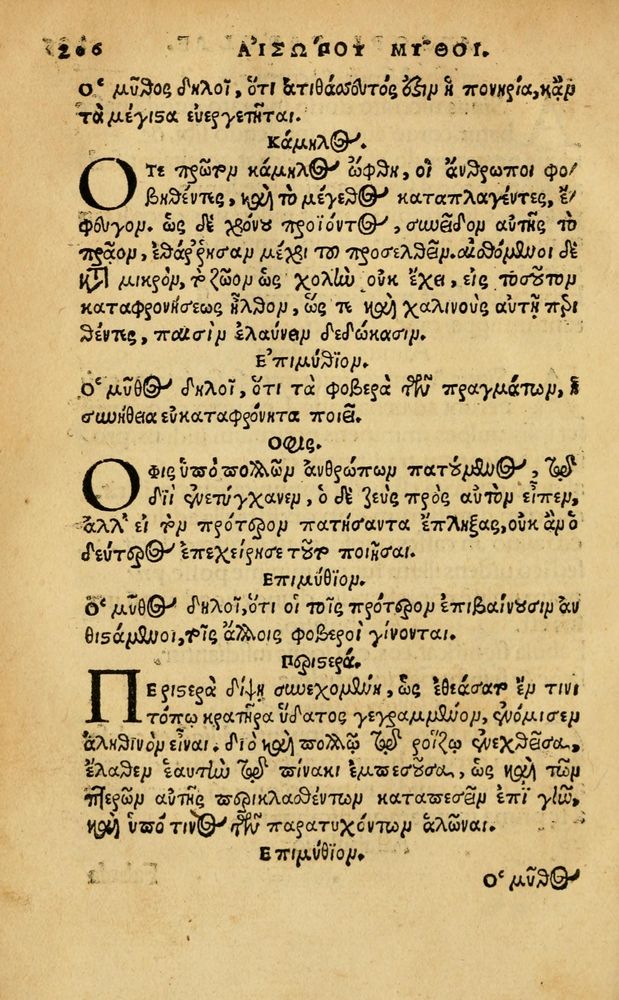 206 ΑΙΣΩΠΟΥ ΜΥΘΟΙ.
Ο μῦθος δηλοῖ, ὅτι ἀτιθάσσευτός ὅζιν ἡ πονηρία, κἂν
τὰ μέγιστα εὐεργετῆται.
Κάμηλος.
ΟΤΕ πρῶτον κάμηλος ὤφθη, οἱ ἄνθρωποι φο-
βηθέντες, καὶ τὸ μέγεθος καταπλαγέντες, ἔ-
φευγον. ὡς δὲ χρόνου προϊόντος, συνεῖδον αὐτῆς τὸ
πρᾶον, ἐθάῤῥησαν μέχρι τοῦ προσελθεῖν. αἰσθόμενοι δὲ
κατὰ μικρὸν, τὸ ζῶον ὡς χολὴν οὐκ ἔχει, εἰς τοσοῦτον
καταφρονήσεως ἦλθον, ὥς τε καὶ χαλινοὺς αὐτῇ περι
θέντες, παισὶν ἐλαύνειν δεδώκασιν.
Ἐπιμύθιον.
Ὁ μῦθος δηλοῖ, ὅτι τὰ φοβερὰ τῶν πραγμάτων, ἡ
συνήθεια εὐκαταφρόνητα ποιεῖ.
Οφις.
ΟΦΙΣ ὑπὸ πολλῶν ἀνθρώπων πατούμενος, τῷ
διῒ ἐνετύγχανεν, ὁ δὲ ζεὺς πρὸς αὐτὸν εἶπεν,
ἀλλ' εἰ τὸν πρότερον πατήσαντα ἔπληξας, οὐκ ἂν ὁ
δεύτερος ἐπεχείρησε τοῦτο ποιῆσαι.
Επιμύθιον.
Ὁ μῦθος δηλοῖ, ὅτι οἱ τοῖς πρότερον ἐπιβαίνουσιν ἀν
θιστάμενοι, τοῖς ἄλλοις φοβεροὶ γίνονται.
Περιστερά.
ΠΕριστερὰ δίψῃ συνεχομένη, ὡς ἐθεάσατο ἔν τινι
τόπῳ κρατῆρα ὕδατος γεγραμμένον, ἐνόμισεν
ἀληθινὸν εἶναι. διὸ καὶ πολλῷ τῷ ροίζῳ ἐνεχθεῖσα,
ἔλαθεν ἑαυτὴν τῷ πίνακι ἐμπεσοῦσα, ὡς καὶ τῶν
πτερῶν αὐτῆς περικλασθέντων καταπεσεῖν ἐπὶ γῆν,
καὶ ὑπό τινος τῶν παρατυχόντων ἁλῶναι.
Επιμύθιον.
Ὁ μῦθος